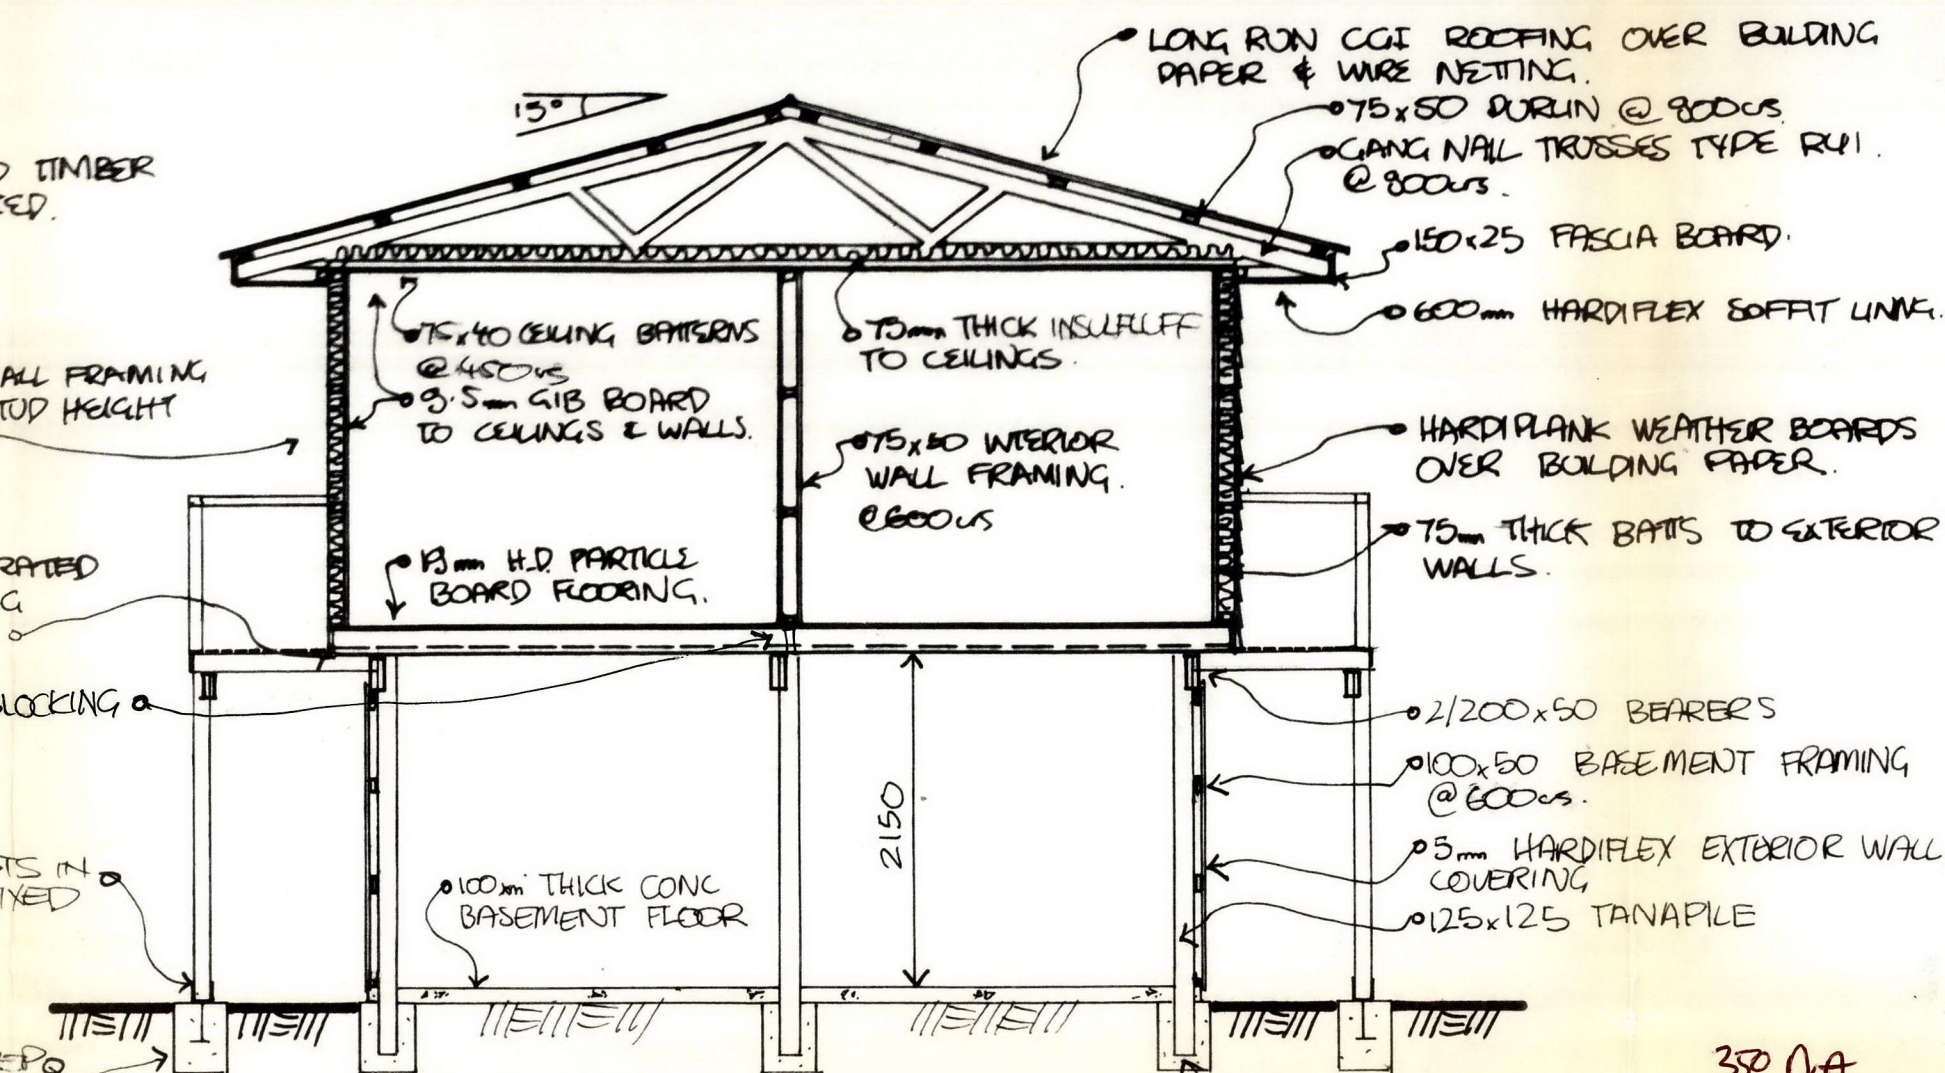 LONG RUN CGI ROOFING OVER BUILDING
PAPER & WIRE NETTING.
15°
75x50 PURLIN @ 900crs
GANG NAIL TRUSSES TYPE R41.
@ 900crs.
TIMBER
150x25 FASCIA BOARD.
600mm HARDIFLEX SOFFIT LINING.
75x40 CEILING BATTERNS
@ 450crs
9.5mm GIB BOARD
TO CEILINGS & WALLS.
75mm THICK INSULFLUFF
TO CEILINGS.
ALL FRAMING
TUD HEIGHT
75x50 INTERIOR
WALL FRAMING.
@600crs
HARDIPLANK WEATHER BOARDS
OVER BUILDING PAPER.
75mm THICK BATTS TO EXTERIOR
WALLS.
19mm H.D. PARTICLE
BOARD FLOORING.
RATED
G
LOCKING
2/200x50 BEARERS
100x50 BASEMENT FRAMING
@600crs.
2150
5mm HARDIFLEX EXTERIOR WALL
COVERING
125x125 TANAPILE
TS IN
IXED
100mm THICK CONC
BASEMENT FLOOR
350